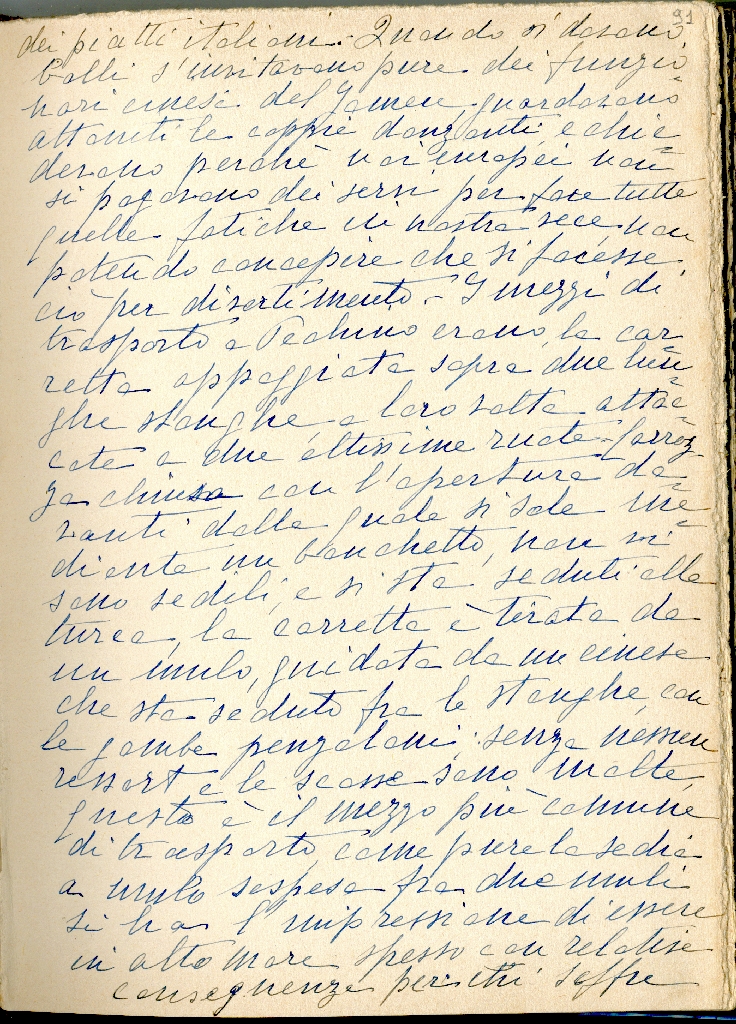 91
dei piatti italiani. Quando si davano
balli s'invitavano pure dei funzio=
nari cinesi del Yamen guardavano
attoniti le coppie danzanti, e chie=
devano perchè noi europei non
si pagavano dei servi per fare tutte
quelle fatiche in nostra vece, non
potendo concepire che si facesse
ciò per divertimento. - I mezzi di
trasporto a Pechino erano, la car=
retta appoggiata sopra due lun=
ghe stanghe a loro volta attac=
cate a due altissime ruote. Carroz=
za chiusa con l'apertura da=
vanti dalla quale si sale me=
diante un banchetto, non vi
sono sedili, e si sta seduti alla
turca, la carretta è tirata da
un mulo, guidata da un cinese
che sta seduto fra le stanghe, con
le gambe penzoloni, senza nessun
ressort e le scosse sono molte,
questo è il mezzo più comune
di trasporto, come pure la sedia
a mulo sospesa fra due muli
si ha l'impressione di essere
in alto mare spesso con relative
conseguenze per chi soffre